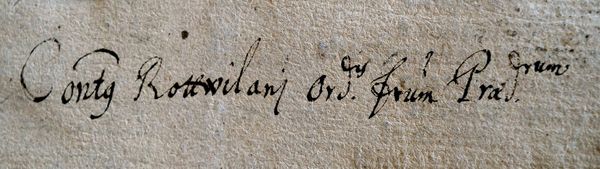 Contꝰ Rottwilanj Ord.ꝭ frum̄ Præd.rum